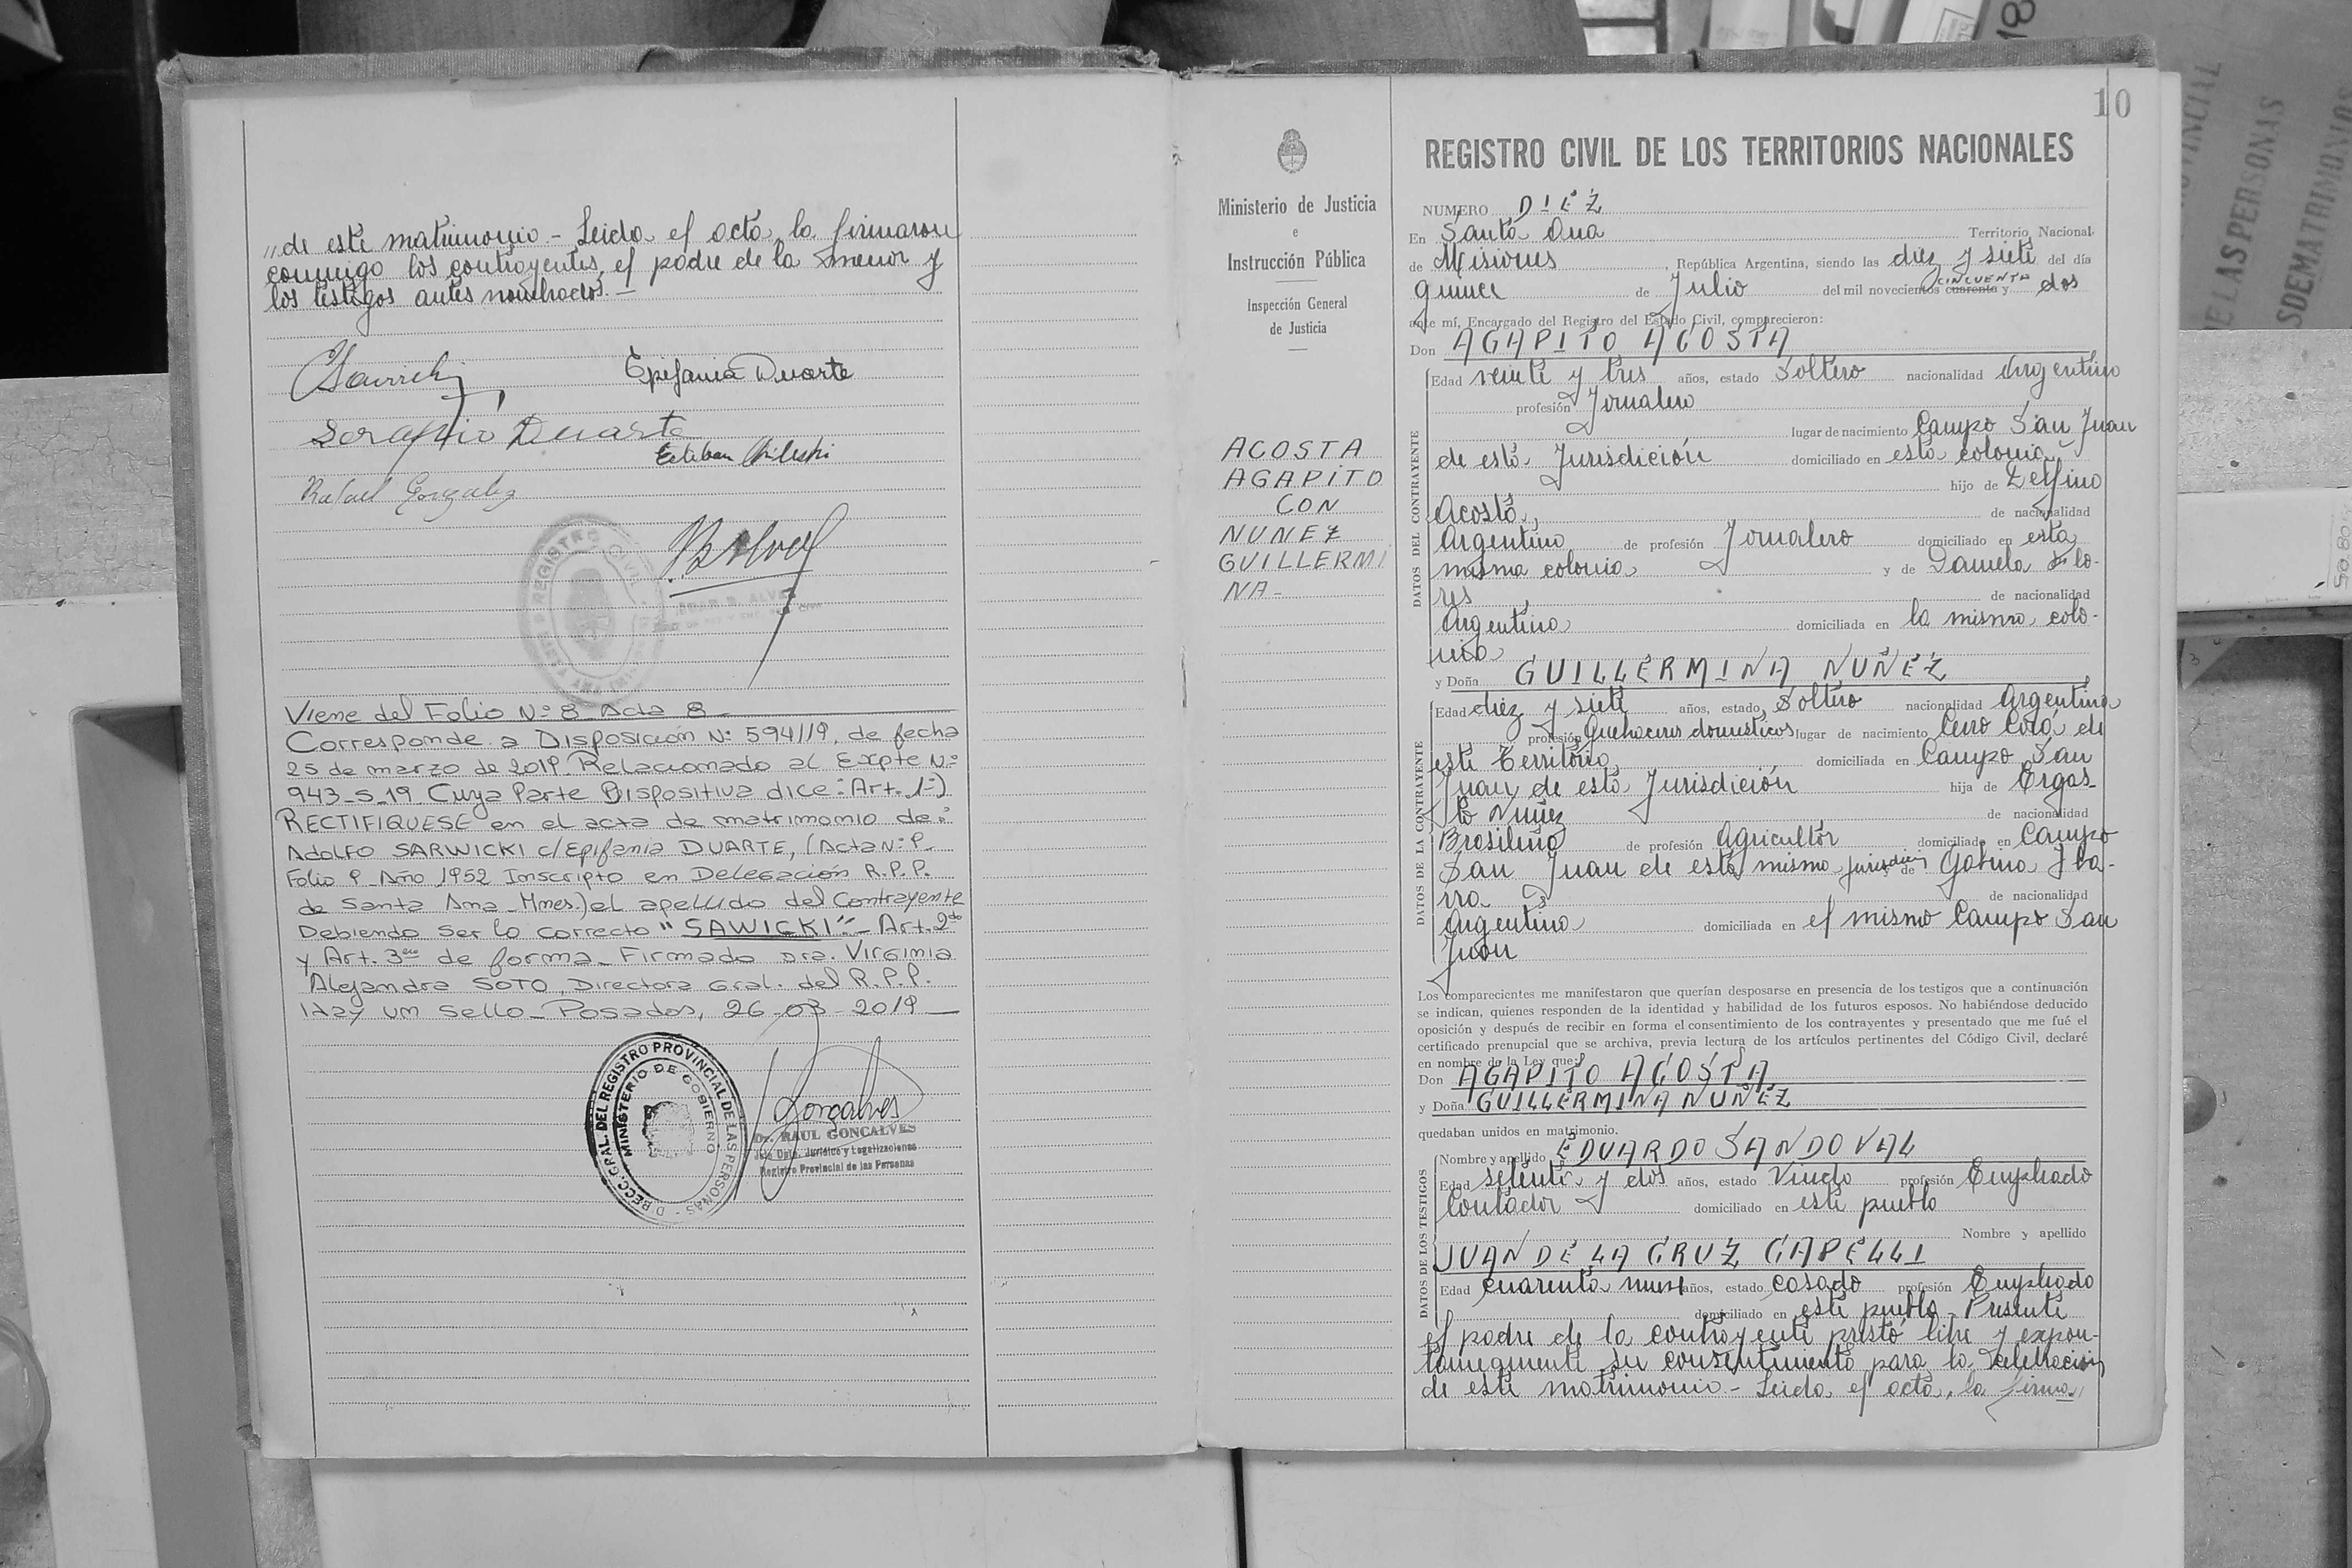 „de este matrimonio.- Leida el acta, la firmaron
conmigo los contrayentes, el padre de la menor y
los testigos antes nombrados.-
Epifania Duarte
Serafin Duarte
Esteban
Rafael Gonzalez
REGISTRO CIVIL
SANTA ANA
Viene del Folio Nº 8 - Acta 8 -
Corresponde a Disposición Nº 594/19, de fecha
25 de marzo de 2019. Relacionado al Expte Nº
943-S-19 Cuya Parte Dispositiva dice: Art. 1º)
RECTIFIQUESE en el acta de matrimonio de:
ADOLFO SARWICKI c/Epifania DUARTE, (Acta Nº 9-
Folio 9 - Año 1952 Inscripto en Delegación R.P.P.
de Santa Ana - Mnes.) el apellido del Contrayente
Debiendo ser lo correcto "SAWICKI" - Art. 2do
y Art. 3ero de forma - Firmado Dra. Virginia
Alejandra SOTO, Directora Gral. del R.P.P.
Hay un Sello - Posadas, 26-03-2019 -
DIRECC. GRAL. DEL REGISTRO PROVINCIAL DE LAS PERSONAS -
MINISTERIO DE GOBIERNO
Goncalves
Dr. RAUL GONCALVES
Jefe Dpto. Jurídico y Legalizaciones
Registro Provincial de las Personas
10
Ministerio de Justicia
e
Instrucción Pública
Inspección General
de Justicia
ACOSTA
AGAPITO
CON
NUNEZ
GUILLERMI
NA-
REGISTRO CIVIL DE LOS TERRITORIOS NACIONALES
NUMERO DIEZ
En Santa Ana Territorio Nacional
de Misiones, República Argentina, siendo las diez y siete del día
quince de Julio del mil novecientos cuarenta y CINCUENTA dos
ante mí, Encargado del Registro del Estado Civil, comparecieron:
Don AGAPITO ACOSTA
DATOS DEL CONTRAYENTE
Edad veinte y tres años, estado Soltero nacionalidad Argentino
profesión Jornalero
lugar de nacimiento Campo San Juan
de esta Jurisdición domiciliado en esta colonia
hijo de Delfino
Acosta, de nacionalidad
Argentino de profesión Jornalero domiciliado en esta
misma colonia y de Daniela Flo-
res de nacionalidad
Argentina domiciliada en la misma colo-
nia
y Doña GUILLERMINA NUÑEZ
DATOS DE LA CONTRAYENTE
Edad diez y siete años, estado, Soltero nacionalidad Argentina
profesión Quehaceres domesticos lugar de nacimiento Cerro Corá de
este Territorio, domiciliada en Campo San
Juan de esta Jurisdición hija de Ergas-
to Nuñez de nacionalidad
Brasileño de profesión Agricultor domiciliado en Campo
San Juan de esta misma jurisdición y de Gabina Iba-
rra de nacionalidad
Argentina domiciliada en el mismo Campo San
Juan
Los comparecientes me manifestaron que querían desposarse en presencia de los testigos que a continuación
se indican, quienes responden de la identidad y habilidad de los futuros esposos. No habiéndose deducido
oposición y después de recibir en forma el consentimiento de los contrayentes y presentado que me fué el
certificado prenupcial que se archiva, previa lectura de los artículos pertinentes del Código Civil, declaré
en nombre de la Ley que:
Don AGAPITO ACOSTA
y Doña GUILLERMINA NUÑEZ
quedaban unidos en matrimonio.
DATOS DE LOS TESTIGOS
Nombre y apellido EDUARDO SANDOVAL
Edad setenta y dos años, estado Viudo profesión Empleado
Contador domiciliado en este pueblo
Nombre y apellido
JUAN DE LA CRUZ CAPELLI
Edad cuarenta nueve años, estado casado profesión Empleado
domiciliado en este pueblo - Presente
el padre de la contrayente prestó libre y expon-
taneamente su consentimiento para la celebracion
de este matrimonio.- Leida el acta, la firma„